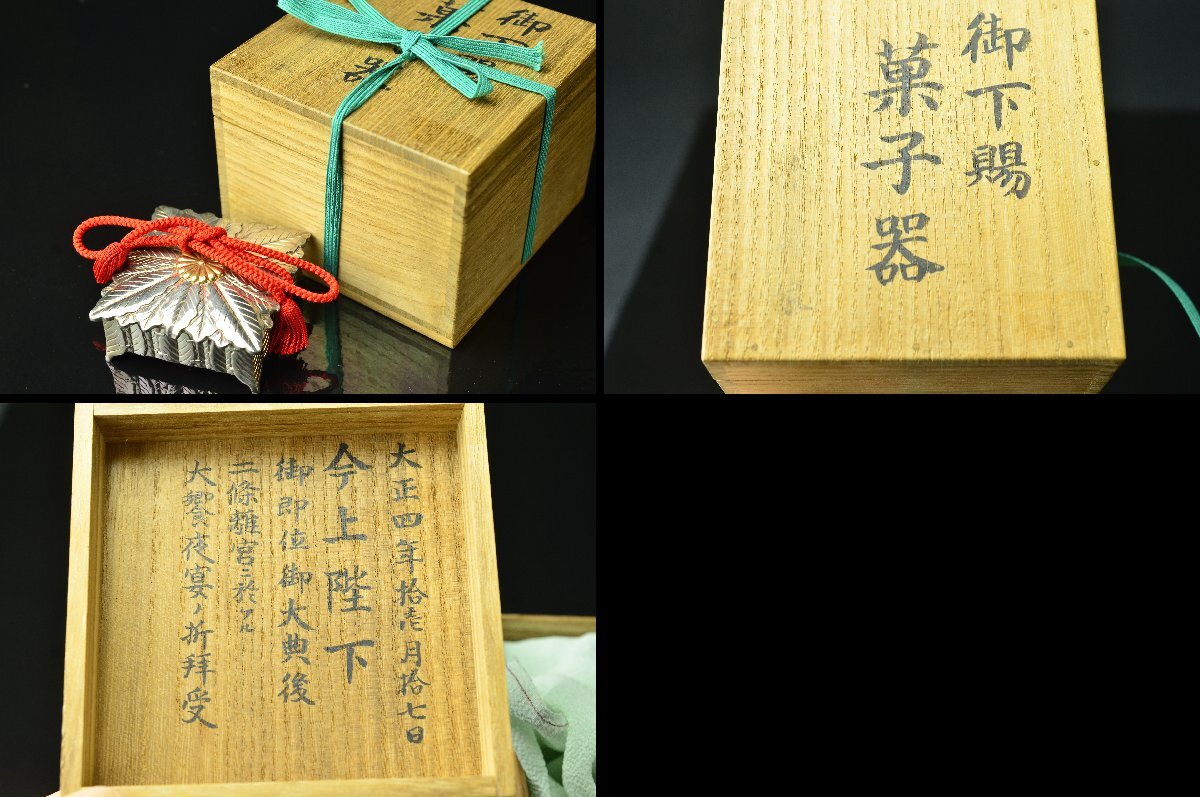 御下賜
菓子器
御下賜
菓子器
大正四年拾壱月拾七日
今上陛下
御即位御大典後
二條離宮ニ於ケル
大饗夜宴ノ折拝受